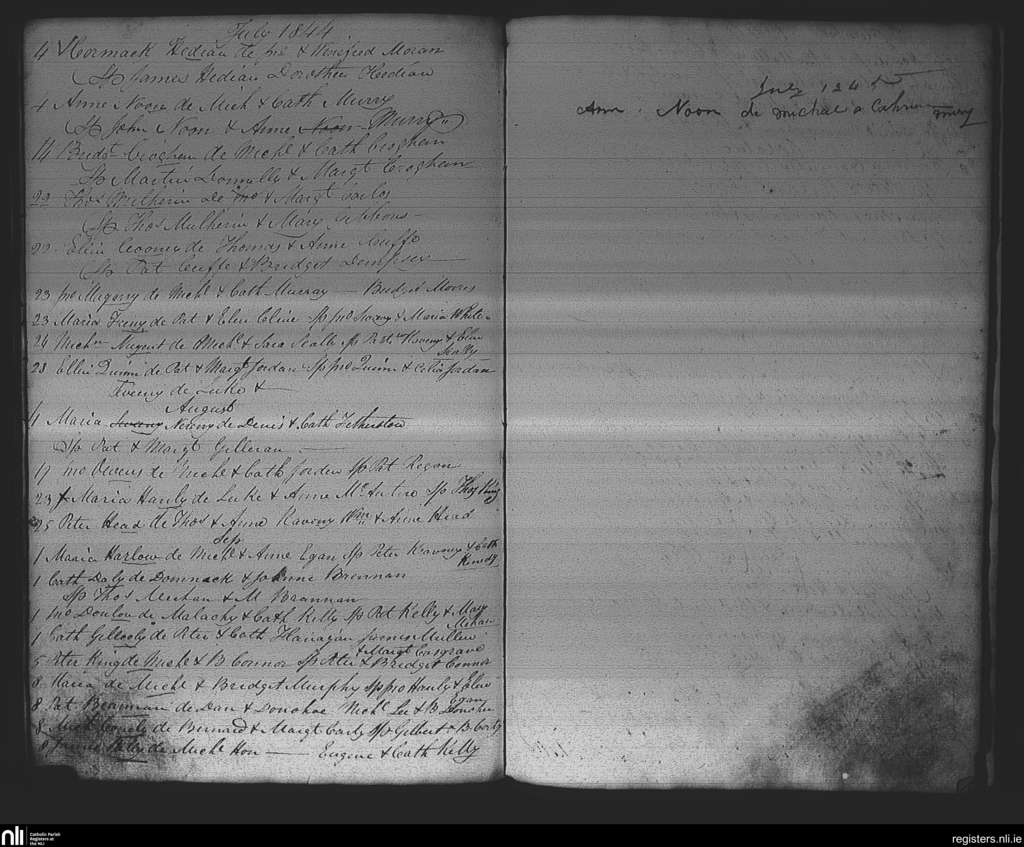 July 1844
4 Cormack Hedian de Jno & Winifred Moran
Sp James Hedian Dorothea Hedian
4 Anne Noon de Mich & Cath Murry
Sp John Noon & Anne Noon Murry
14 Bridgt Croghan de Michl & Cath Croghan
Sp Martin Donnelly & Margt Croghan
22 Thos Mulherin de & Margt
Sp Thos Mulherin & Mary
22 Ellen Cooney de Thomas & Anne Cuffe
Sp Pat Cuffe & Bridget Dempsey
23 Jno de Michl & Cath Murray Bridget Morris
23 Maria Feeny de Pat & Elen Cline Sp Jno & Maria White
24 Nugent de Michl & Sara Scally Sp & Elen
Scally
23 Ellen Quinn de Pat & Margt Jordan Sp Jno Quinn & Celia Jordan
Feeny de Luke &
August
4 Maria Neary de Denis & Cath Fetherston
Sp Pat & Margt Gilleran
17 Jno Owens de Michl & Cath Jorden Sp Pat Regan
23 Maria Hanly de Luke & Anne Sp Thos King
25 Peter Head de Thos & Anne Raveny Wm & Anne Head
Sep
1 Maria Harlow de Michl & Anne Egan Sp Peter & Cath
1 Cath Daly de Dominack & Brennan
Sp Thos Meehan & M Brannan
1 Jno Donlon de Malachy & Cath Kelly Sp Pat Kelly & Mary
Mehan
1 Cath Gillooly de Peter & Cath Flanagan James Mullen
& Margt Cosgrave
5 Peter King de Michl & B Connor Sp Peter & Bridget Connor
8 Maria de Michl & Bridget Murphy Sp Jno Hanly & Elen
Egan
8 Pat Brennan de Dan & Donohoe Michl Lee & B Donohoe
8 de Bernard & Margt Carty Sp Gilbert & B Carty
8 Kelly de Michl Hon Eugene & Cath Kelly
July 1845
Ann Noon de michal & Cahrin mury
nli
Catholic Parish
Registers at
the NLI
registers.nli.ie